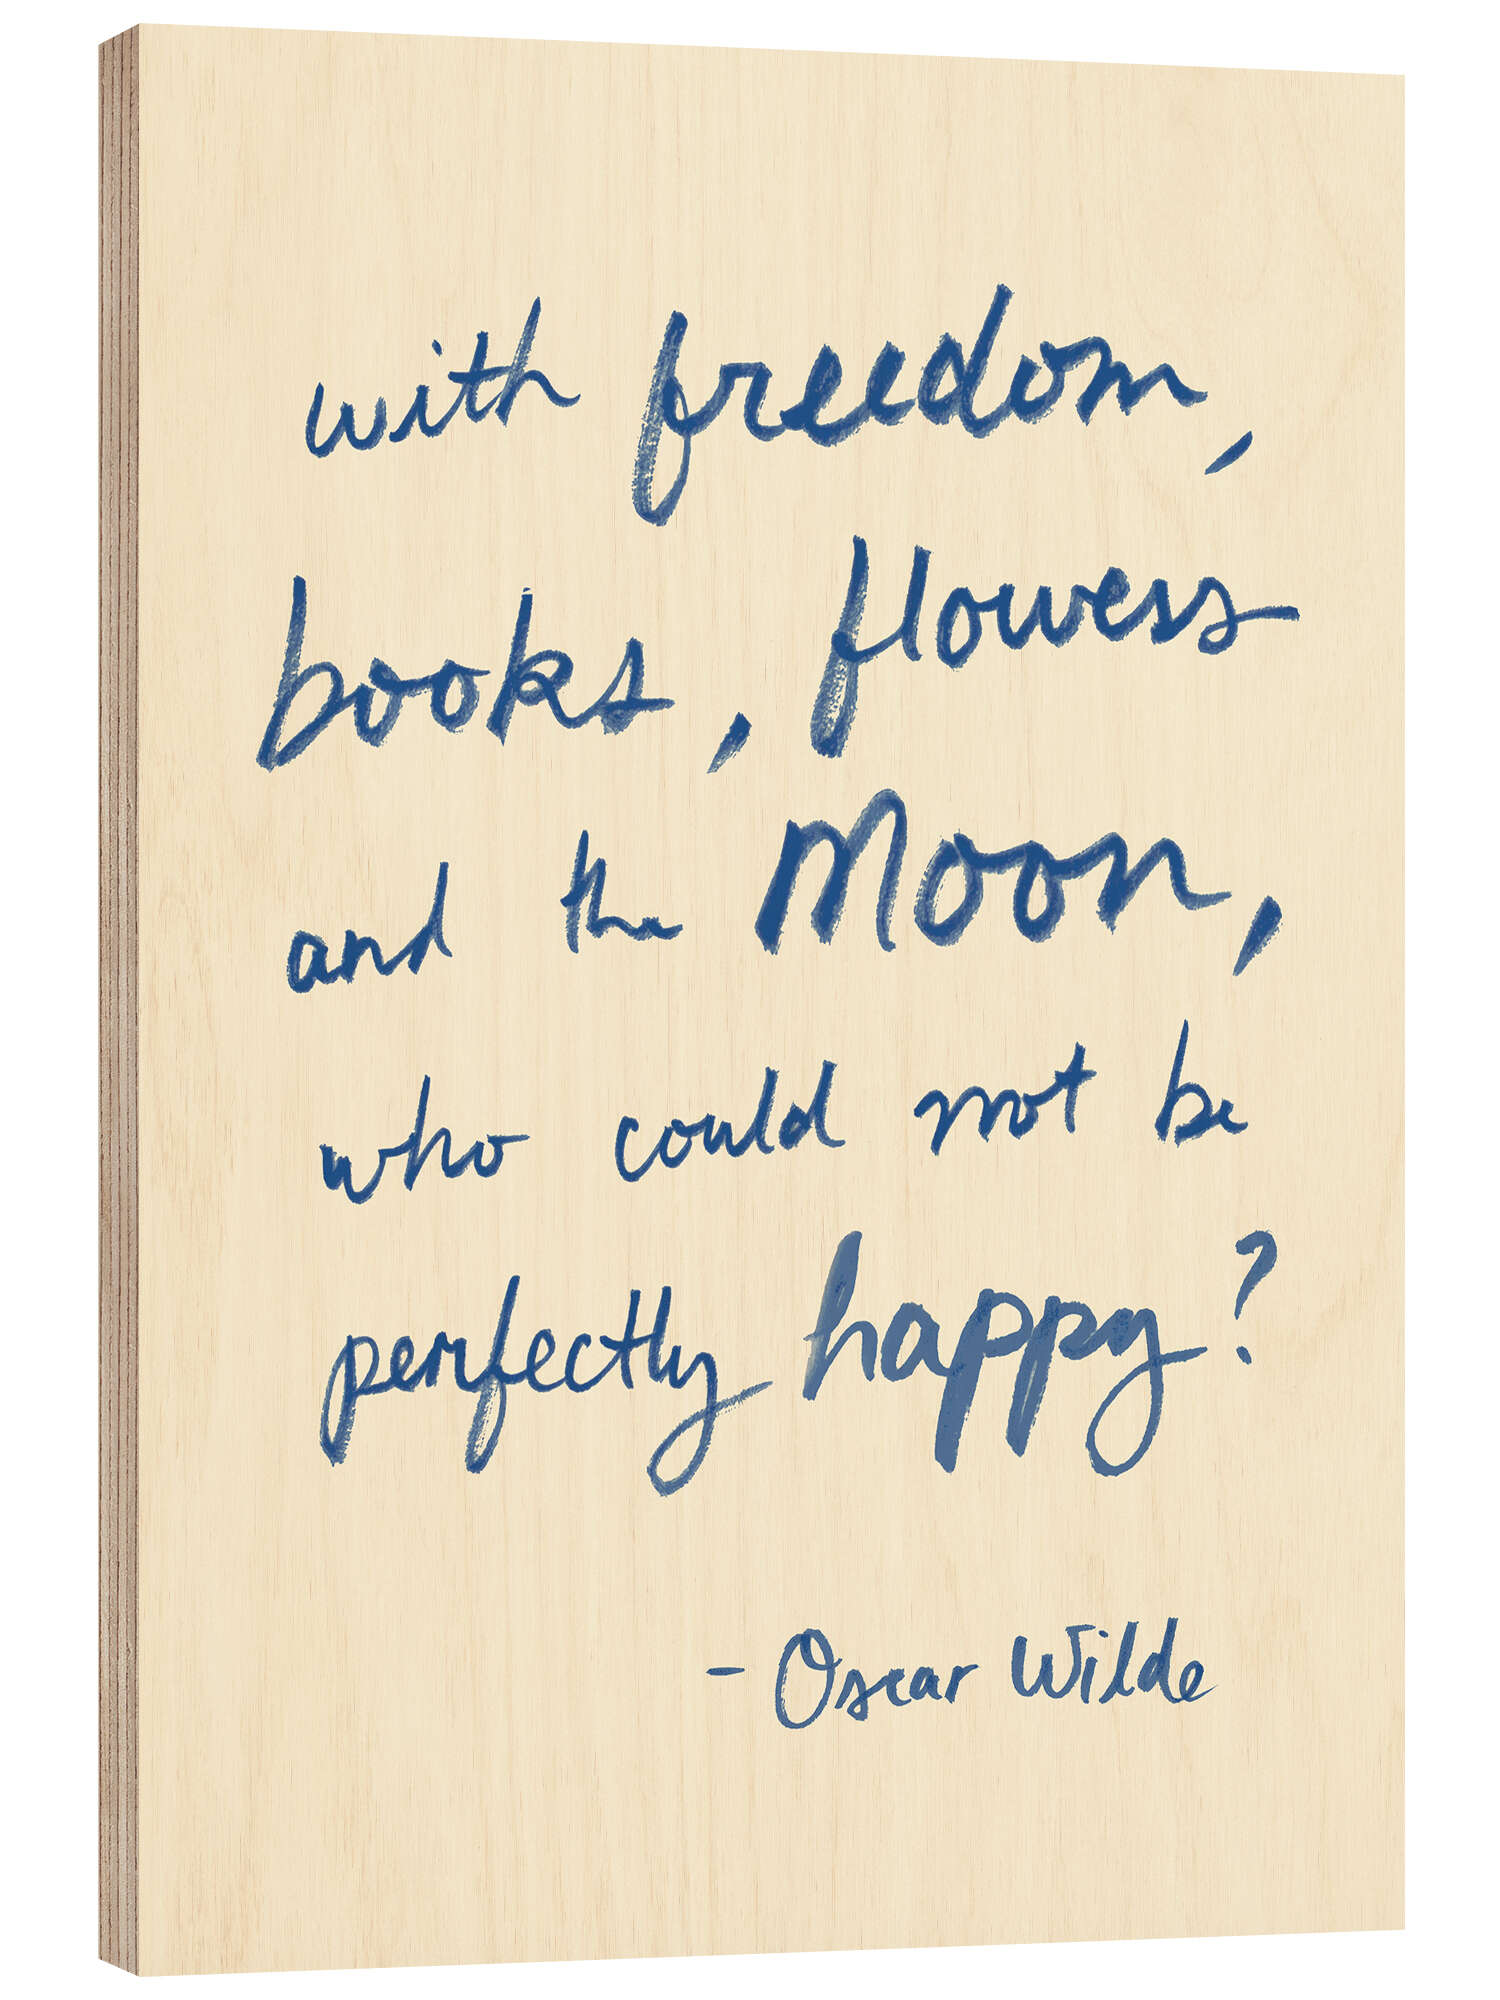 with freedom,
books, flowers
and the Moon,
who could not be
perfectly happy?
- Oscar Wilde